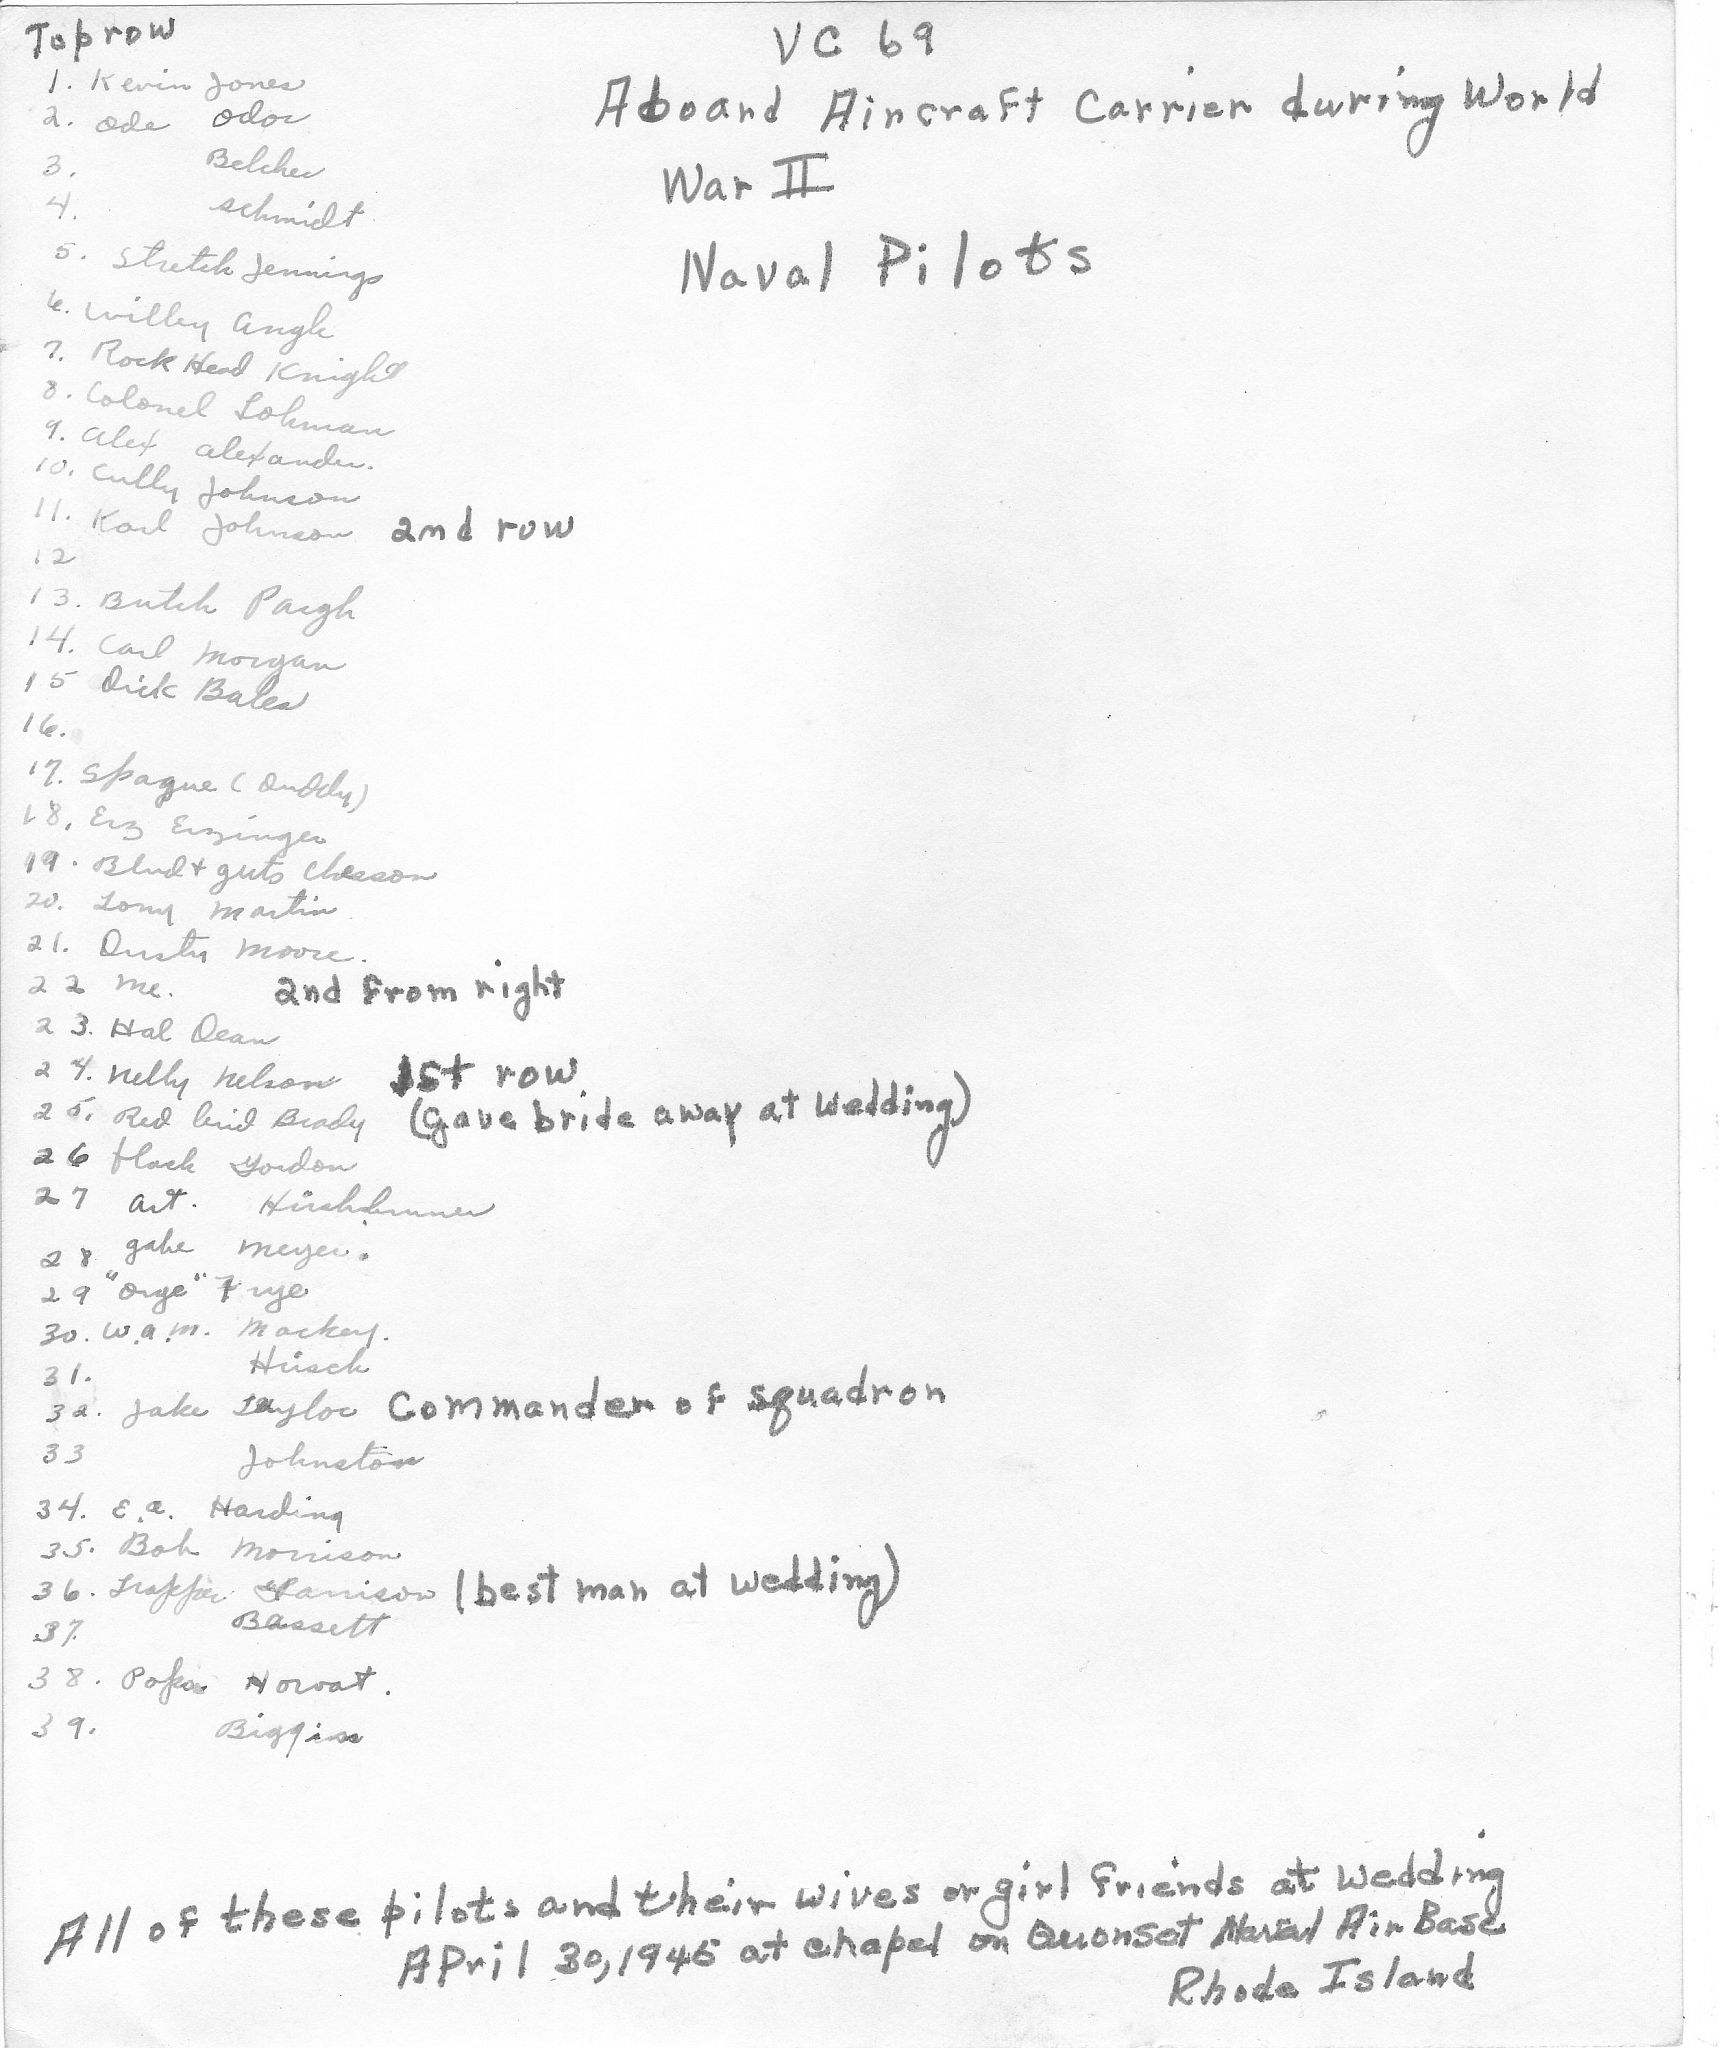 Top row
VC 69
Aboard Aircraft Carrier during World
War II
Naval Pilots
1. Kevin Jones
2. Ode Odor
3. Belcher
4. Schmidt
5. Stretch Jennings
6. Willey Angle
7. Rock Head Knight
8. Colonel Lohman
9. Alex Alexander.
10. Cully Johnson
11. Karl Johnson 2nd row
12
13. Butch Paugh
14. Carl Morgan
15 Dick Bales
16.
17. Spague (Duddy)
18. Erz Erzinger
19. Blud + guts Chesson
20. Martin
21. Dusty Moore.
22 Me. 2nd from right
23. Hal Dean
24. Nelly Nelson 1st row
25. Red Brady (Gave bride away at wedding)
26 flash Gordon
27 Art. Hirshbrunner
28 gabe Meyer.
29 "Orge" Frye
30. W.A.M. Mackey.
31. Hirsch
32. Jake Taylor Commander of squadron
33 Johnston
34. E.A. Harding
35. Bob Morrison
36. Trapper Harrison (best man at wedding)
37 Bassett
38. Popa Horvat.
39. Biggins
All of these pilots and their wives or girl friends at wedding
April 30, 1945 at chapel on Quonset Naval Air Base
Rhode Island